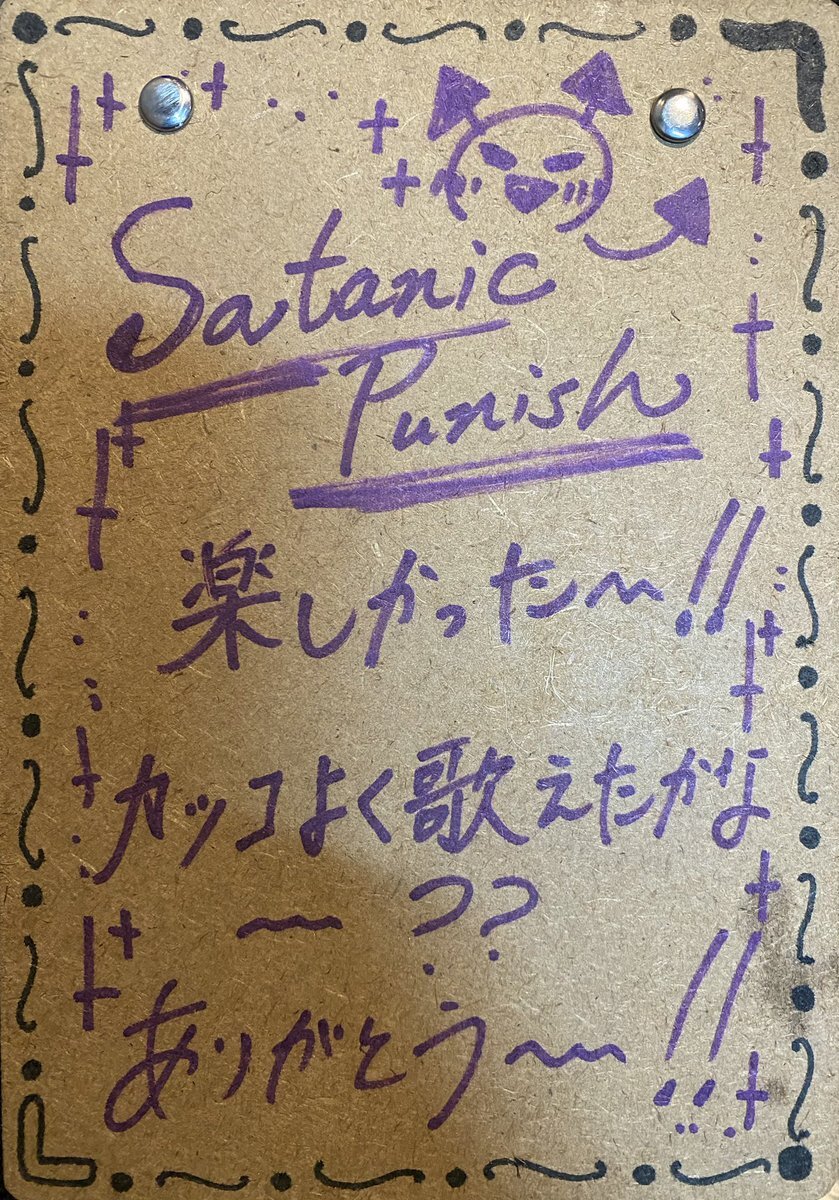 Satanic
Punish
楽しかった〜!!
カッコよく歌えたかな
〜??
ありがとう〜!!